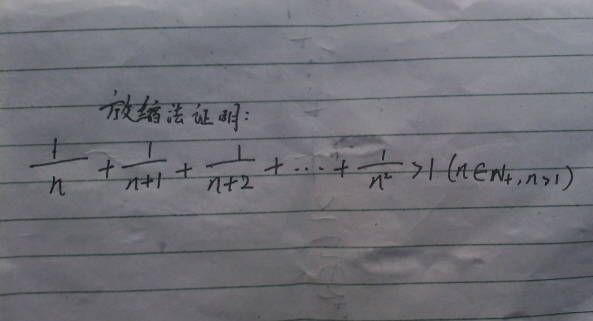 放缩法证明:
1/n + 1/(n+1) + 1/(n+2) + ... + 1/n² >1 (n∈N₊, n>1)